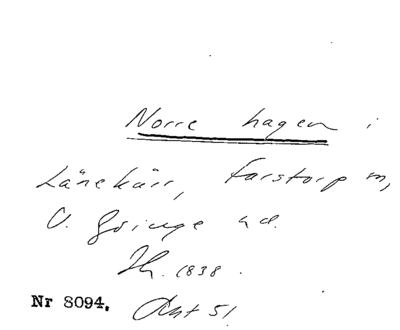 Norre hagen i
Länekärr, Farstorp m,
V. Göinge hd.
Th. 1838.
Nr 8094. Akt 51